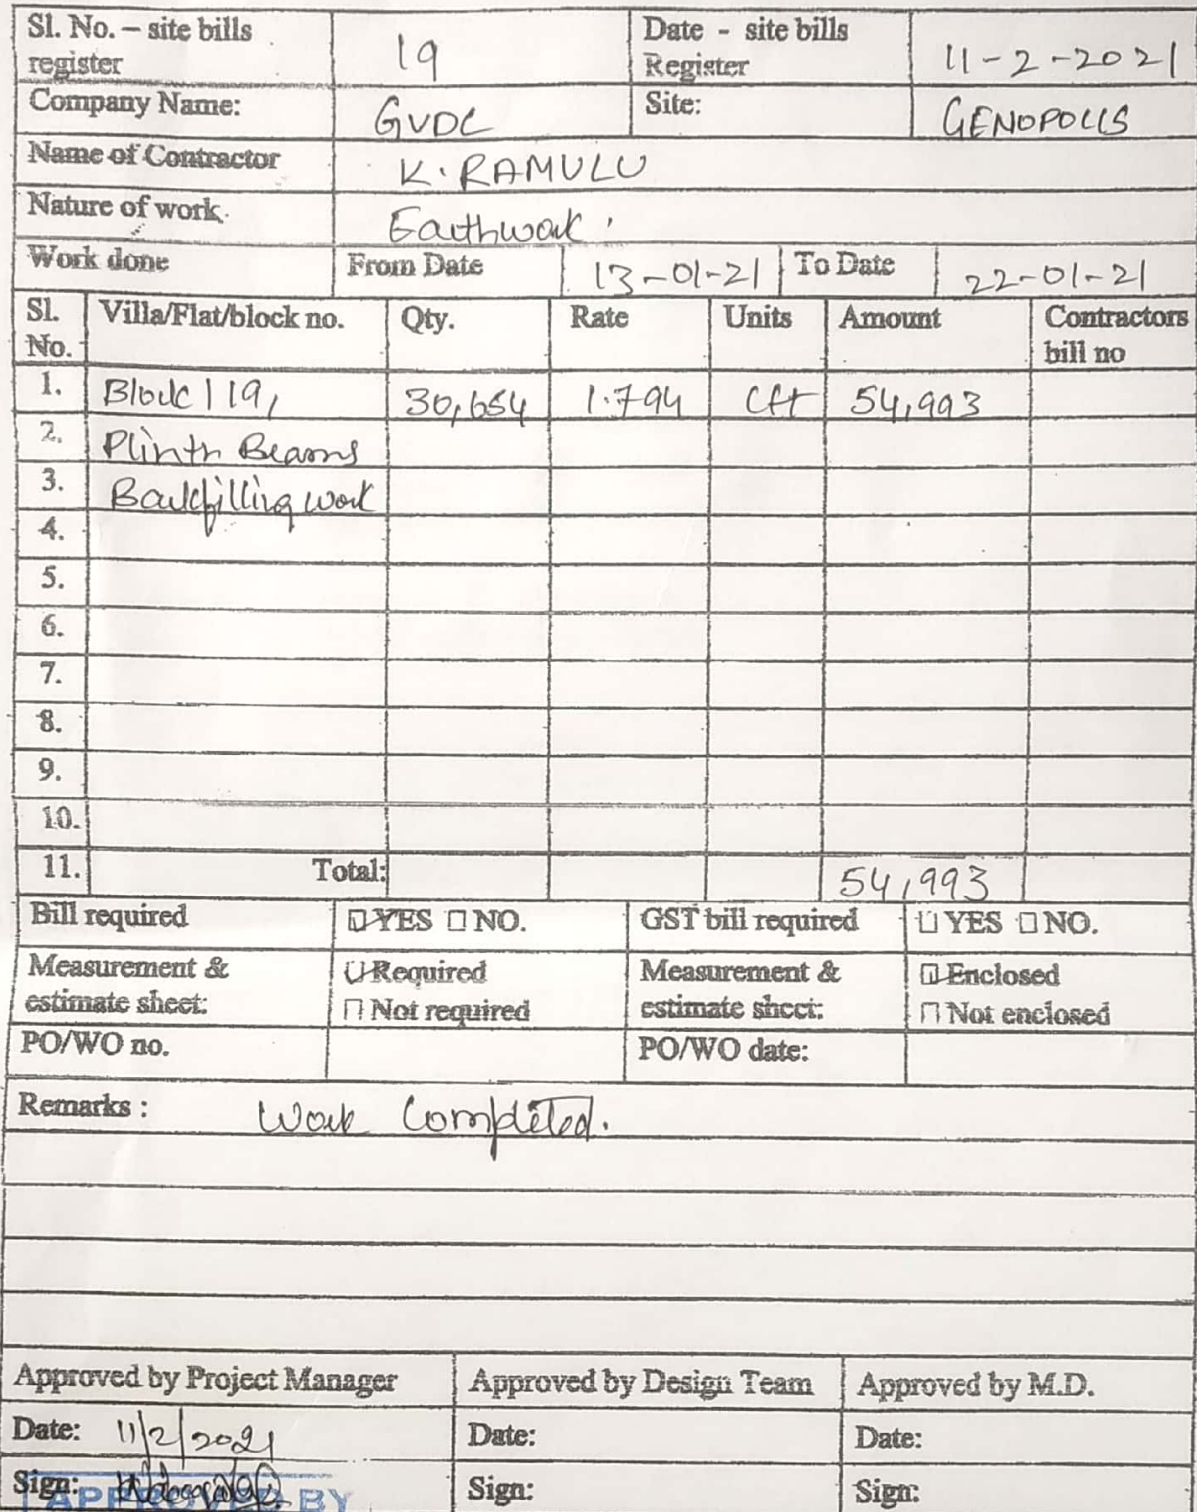 Sl. No. – site bills register 19 Date - site bills Register 11-2-2021
Company Name: GVDC Site: GENOPOLIS
Name of Contractor K. RAMULU
Nature of work. Earthwork.
Work done From Date 13-01-21 To Date 22-01-21
Sl. No. Villa/Flat/block no. Qty. Rate Units Amount Contractors bill no
1. Block 119, 30,654 1.794 cft 54,993
2. Plinth Beams
3. Backfilling work
4.
5.
6.
7.
8.
9.
10.
11. Total: 54,993
Bill required YES NO. GST bill required YES NO.
Measurement & estimate sheet: Required Measurement & estimate sheet: Enclosed
Not required Not enclosed
PO/WO no. PO/WO date:
Remarks : Work Completed.
Approved by Project Manager Approved by Design Team Approved by M.D.
Date: 11/2/2021 Date: Date:
Sign: Sign: Sign:
APPROVED BY